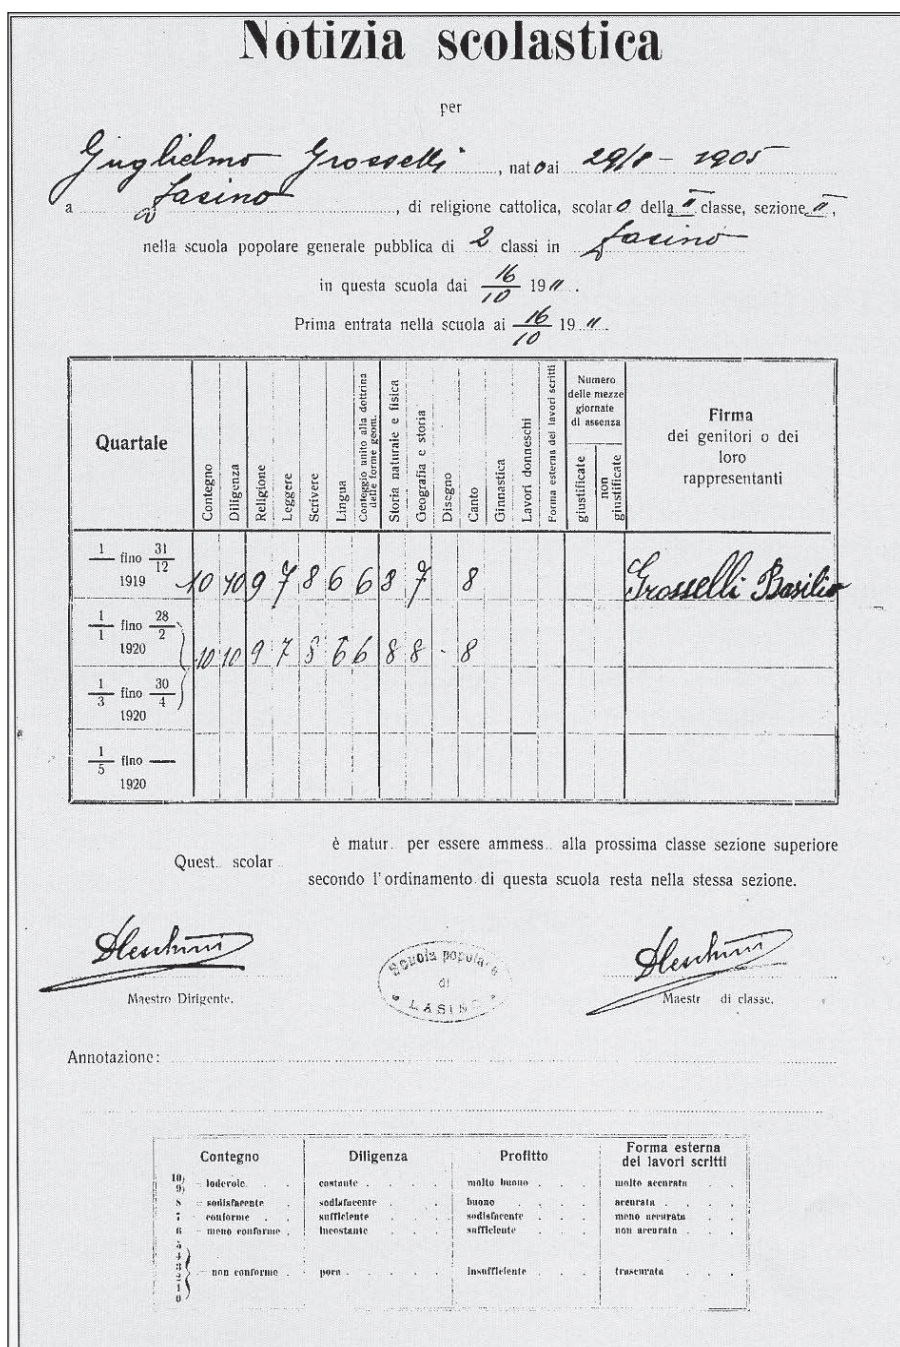 Notizia scolastica
per
Guglielmo Grosselli, nato ai 29/8 - 1905
a Lasino, di religione cattolica, scolaro della II classe, sezione II,
nella scuola popolare generale pubblica di 2 classi in Lasino
in questa scuola dai 16/10 1911.
Prima entrata nella scuola ai 16/10 1911.
Quartale Contegno Diligenza Religione Leggere Scrivere Lingua Conteggio unito alla dottrina delle forme geom. Storia naturale e fisica Geografia e storia Disegno Canto Ginnastica Lavori donneschi Forma esterna dei lavori scritti
Numero delle mezze giornate di assenza
giustificate non giustificate
Firma
dei genitori o dei
loro
rappresentanti
1 fino 31/12 1919 10 10 9 7 8 6 6 8 7 8 Grosselli Basilio
1/1 fino 28/2 1920 10 10 9 7 8 6 6 8 8 - 8
1/3 fino 30/4 1920
1/5 fino — 1920
è matur.. per essere ammess.. alla prossima classe sezione superiore
Quest.. scolar..
secondo l'ordinamento di questa scuola resta nella stessa sezione.
Maestro Dirigente.
Scuola popolare
di
LASINO
Maestr di classe.
Annotazione:
Contegno Diligenza Profitto Forma esterna dei lavori scritti
10) 9) - lodevole costante molto buono molto accurata
8 - sodisfacente sodisfacente buono accurata
7 - conforme sufficiente sodisfacente meno accurata
6 - meno conforme incostante sufficiente non accurata
5 4 3 2 1 0 - non conforme poca insufficiente trascurata